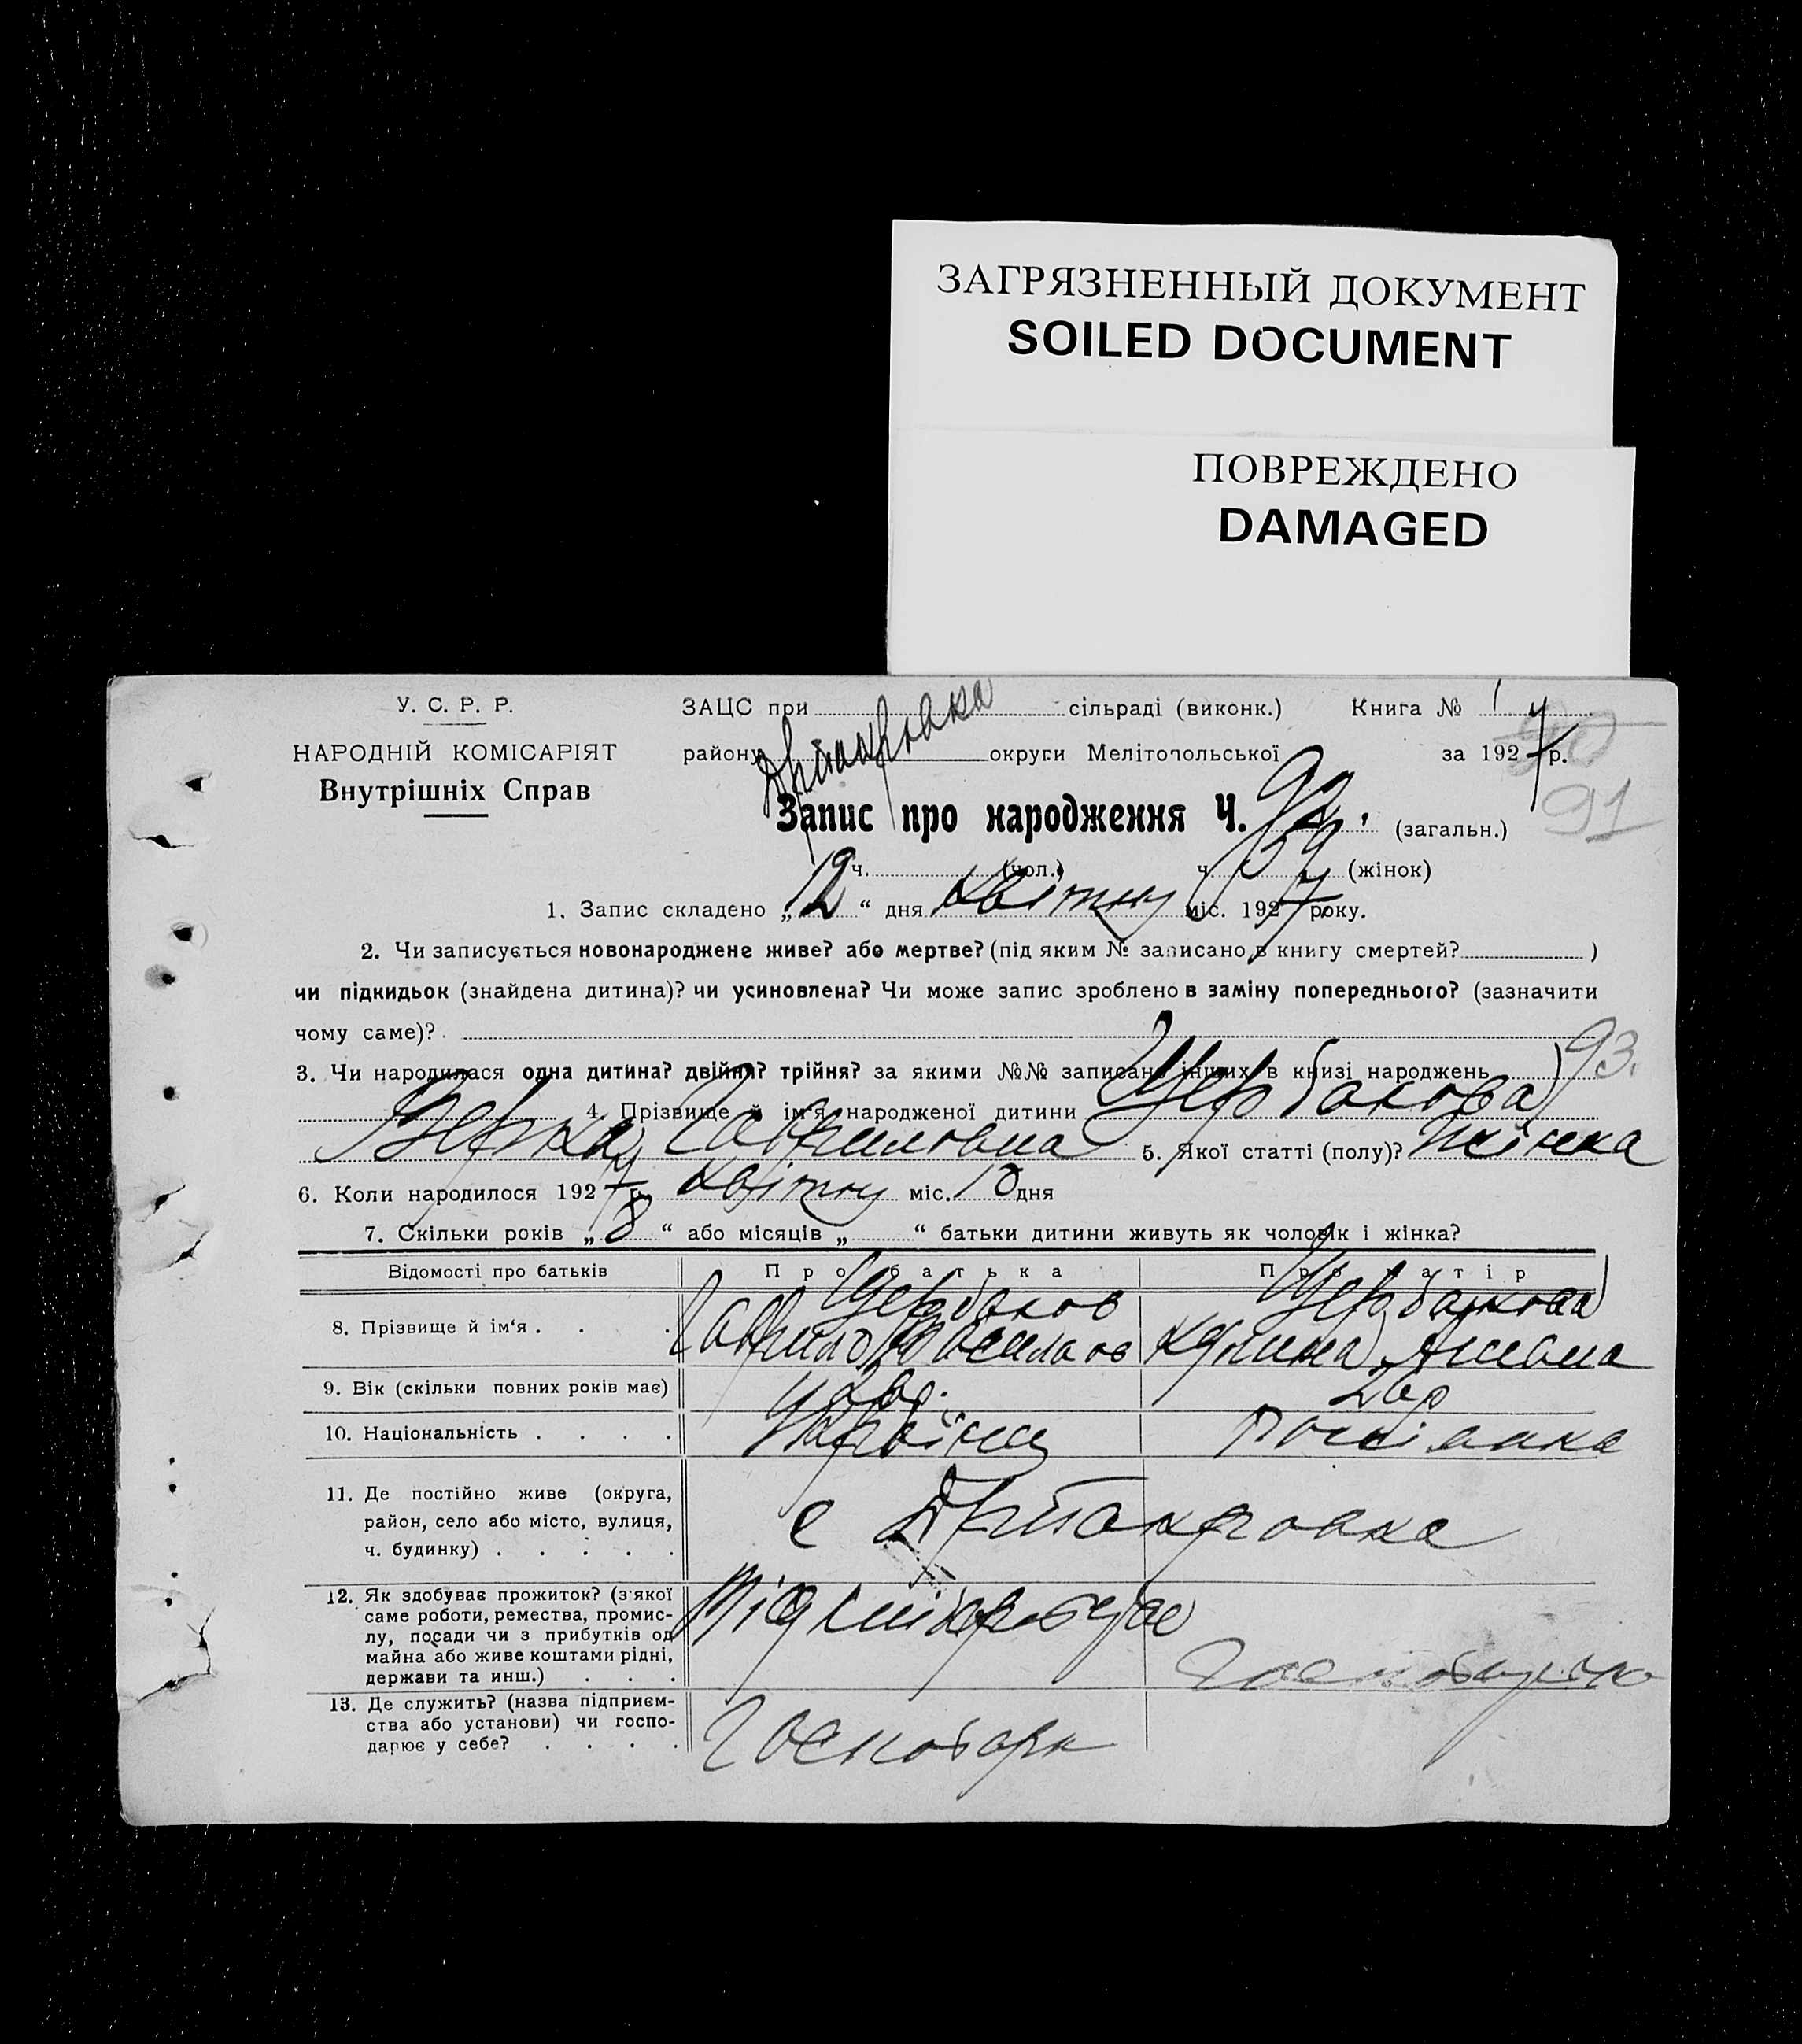 ЗАГРЯЗНЕННЫЙ ДОКУМЕНТ
SOILED DOCUMENT
ПОВРЕЖДЕНО
DAMAGED
У. С. Р. Р.
НАРОДНІЙ КОМІСАРІЯТ
Внутрішніх Справ
ЗАЦС при сільраді (виконк.) Книга № 1
району округи Мелітопольської за 1927 р.
Запис про народження Ч. 92. (загальн.)
91
ч. (чол.) ч. 39 (жінок)
1. Запис складено „12“ дня квітню міс. 1927 року.
2. Чи записується новонароджене живе? або мертве? (під яким № записано в книгу смертей? )
чи підкидьок (знайдена дитина)? чи усиновлена? Чи може запис зроблено в заміну попереднього? (зазначити
чому саме)?
93.
3. Чи народилася одна дитина? двійня? трійня? за якими №№ записано інших в книзі народжень
4. Прізвище й ім'я народженої дитини Щербакова
Гавриловна 5. Якої статті (полу)? Жінка
6. Коли народилося 1927 р. квітню міс. 10 дня
7. Скільки років „8“ або місяців „ “ батьки дитини живуть як чоловік і жінка?
Відомості про батьків Про батька Про матір
8. Прізвище й ім'я . . . Щербаков Щербакова
Гаврило Акулина
9. Вік (скільки повних років має) 26р
10. Національність . . . . Українец Росіянка
11. Де постійно живе (округа,
район, село або місто, вулиця,
ч. будинку) . . . . .
с
12. Як здобуває прожиток? (з якої
саме роботи, ремества, промис-
лу, посади чи з прибутків од
майна або живе коштами рідні,
держави та инш.) . . .
13. Де служить? (назва підприєм-
ства або установи) чи госпо-
дарює у себе? . . . .
Господарь